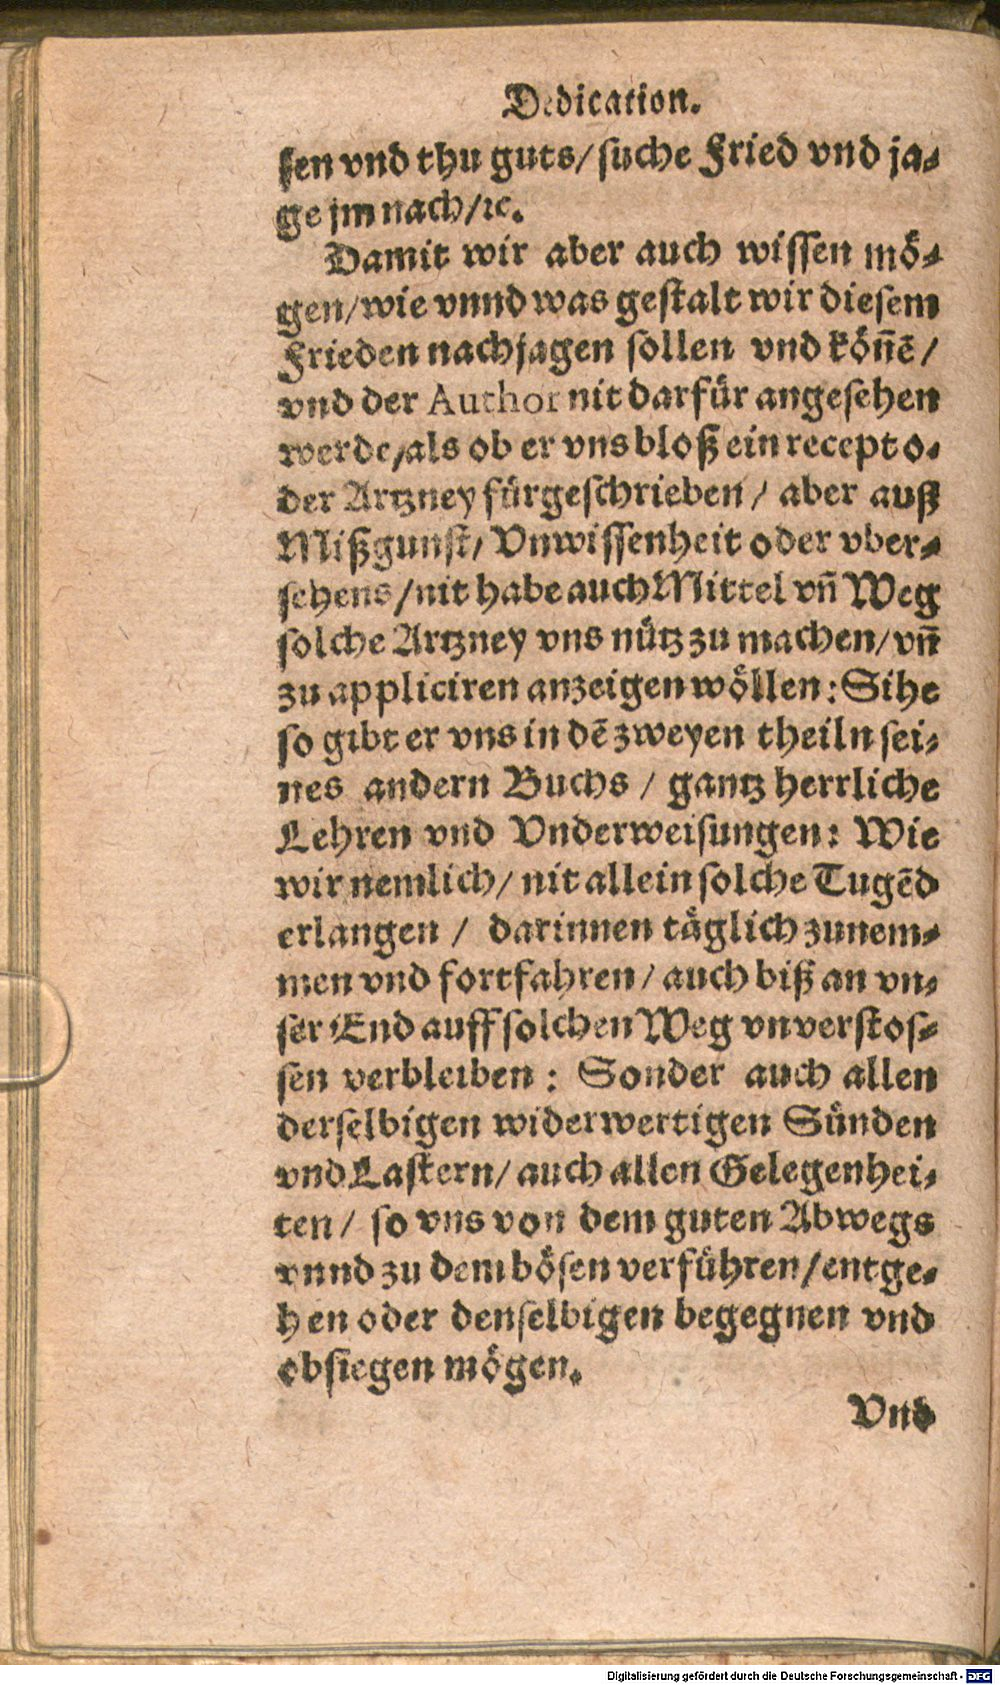 Dedication.
sen vnd thu guts/ suche Fried vnd ja-
ge jm nach/ ꝛc.
Damit wir aber auch wissen mö-
gen/ wie vnnd was gestalt wir diesem
Frieden nachjagen sollen vnd köñē/
vnd der Author nit darfür angesehen
werde/ als ob er vns bloß ein recept o-
der Artzney fürgeschrieben/ aber auß
Mißgunst/ Vnwissenheit oder vber-
sehens/ nit habe auch Mittel vñ Weg
solche Artzney vns nütz zu machen/ vñ
zu appliciren anzeigen wöllen: Sihe
so gibt er vns in dē zweyen theiln sei-
nes andern Buchs / gantz herrliche
Lehren vnd Vnderweisungen: Wie
wir nemlich/ nit allein solche Tugēd
erlangen / darinnen täglich zunem-
men vnd fortfahren/ auch biß an vn-
ser End auff solchen Weg vnverstos-
sen verbleiben: Sonder auch allen
derselbigen widerwertigen Sünden
vnd Lastern/ auch allen Gelegenhei-
ten/ so vns von dem guten Abwegs
vnnd zu dem bösen verführen/ entge-
hen oder denselbigen begegnen vnd
obsiegen mögen.
Vnd
Digitalisierung gefördert durch die Deutsche Forschungsgemeinschaft - DFG